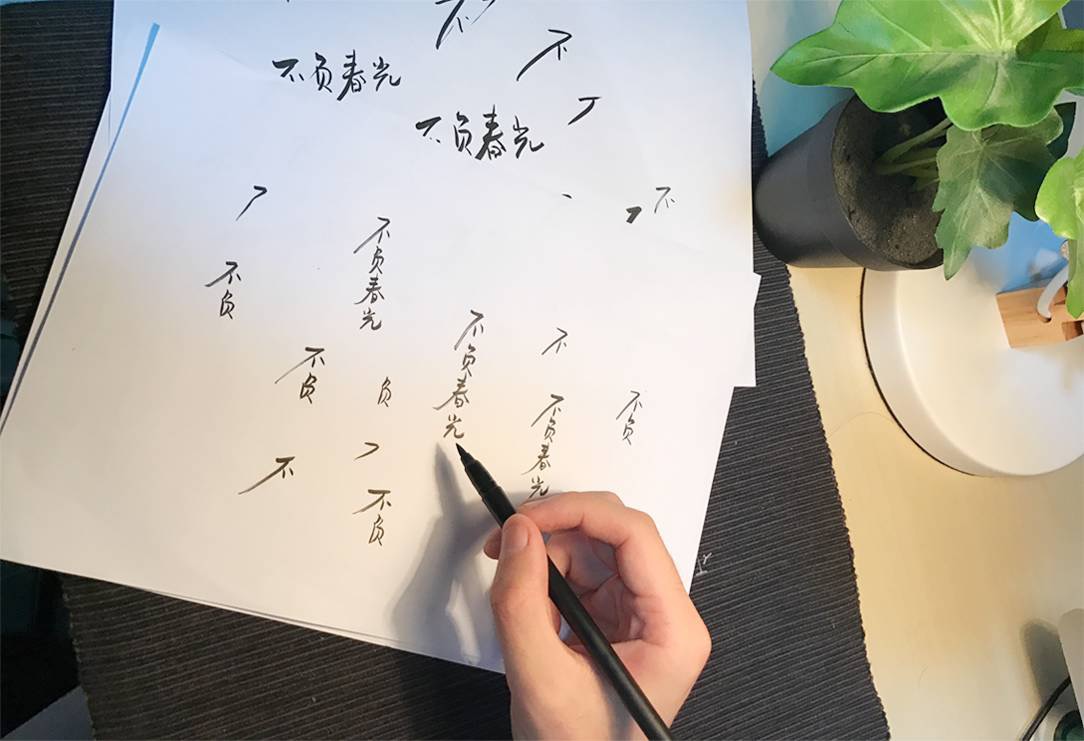 不
不
不负春光
不负春光
不
不负
不负春光
不负春光
不
不负
不负春光
不负
负
不
不负